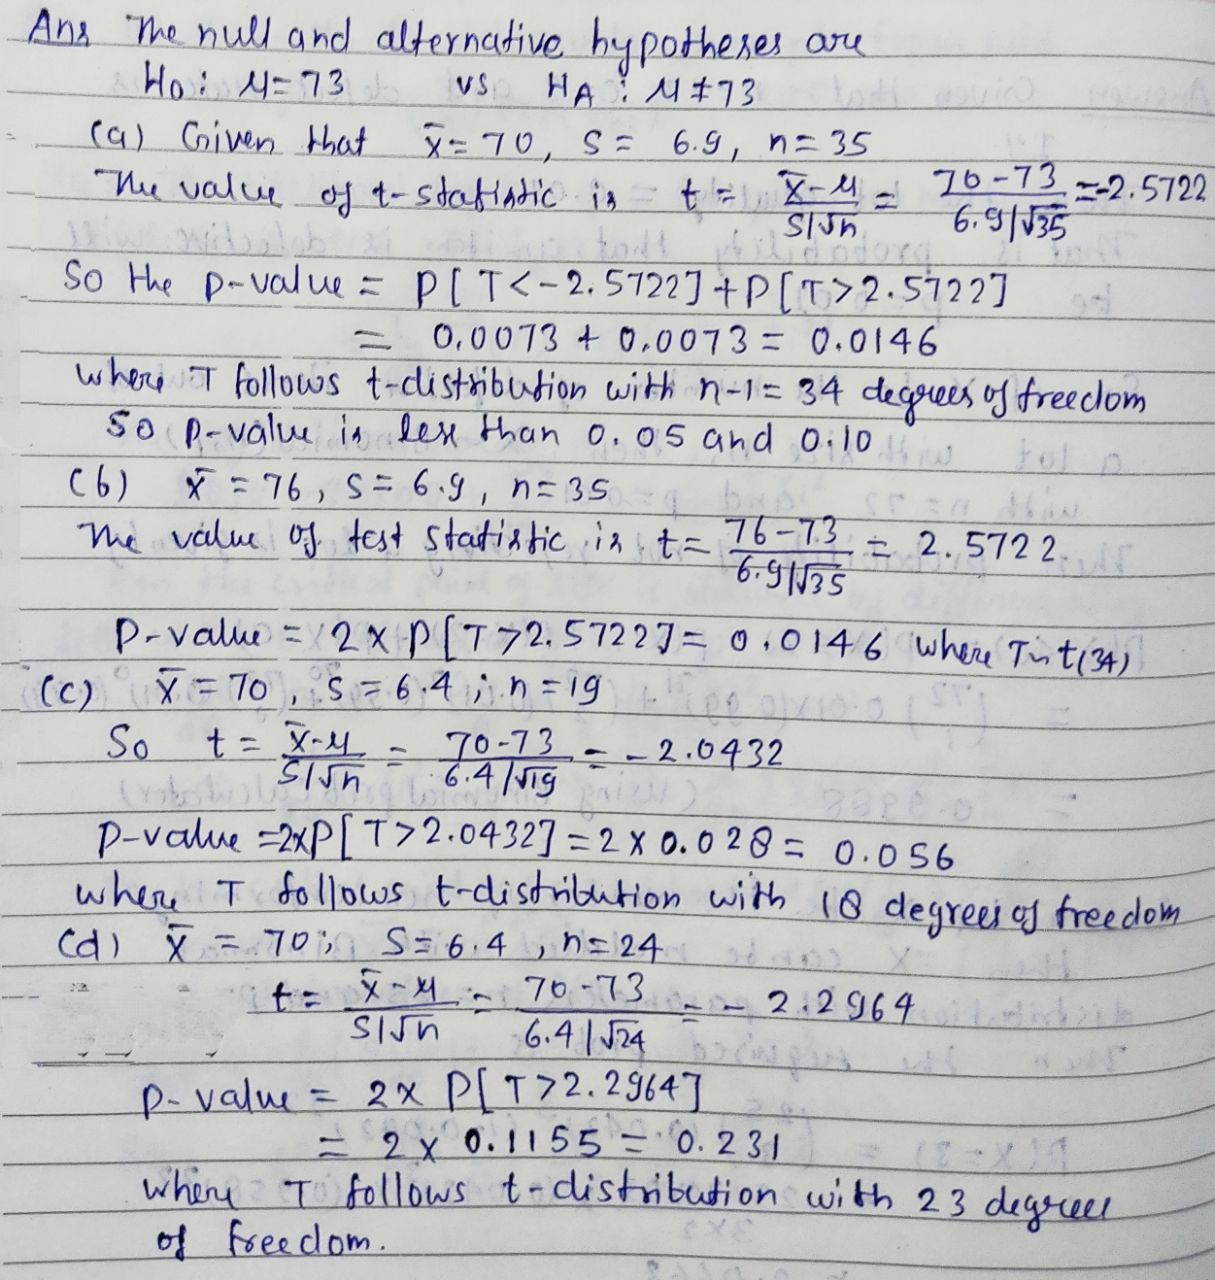 Ans The null and alternative hypotheses are
H0: μ=73 vs HA: μ≠73
(a) Given that x̄=70, S= 6.9, n=35
The value of t-statistic is t = x̄-μ / S/√n = 70-73 / 6.9/√35 =-2.5722
So the p-value = P[T<-2.5722]+P[T>2.5722]
= 0.0073 + 0.0073 = 0.0146
where T follows t-distribution with n-1= 34 degrees of freedom
So p-value is less than 0.05 and 0.10
(b) x̄ =76, S=6.9, n=35
The value of test statistic is t= 76-73 / 6.9/√35 = 2.5722
P-value = 2×P[T>2.5722]= 0.0146 where T~t(34)
(c) x̄=70, S=6.4; n=19
So t= x̄-μ / S/√n = 70-73 / 6.4/√19 = -2.0432
p-value =2×P[T>2.0432]=2×0.028= 0.056
where T follows t-distribution with 18 degrees of freedom
(d) x̄ = 70; S=6.4, n=24
t= x̄-μ / S/√n = 70-73 / 6.4/√24 = -2.2964
p-value = 2× P[T>2.2964]
= 2× 0.1155= 0.231
where T follows t-distribution with 23 degrees
of freedom.